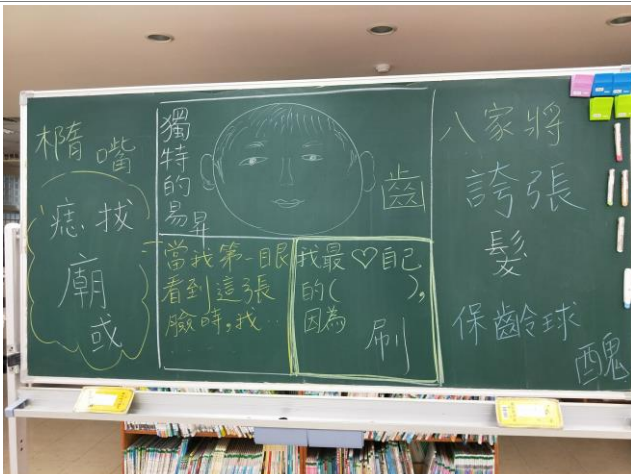 橢嘴
痣.找
廟
或
獨特的易昇
齒
當我第一目艮
看到這張
臉時,我…
我最♡自己
的( ),
因為
刷
八家將
誇張
髮
保齡球
醜